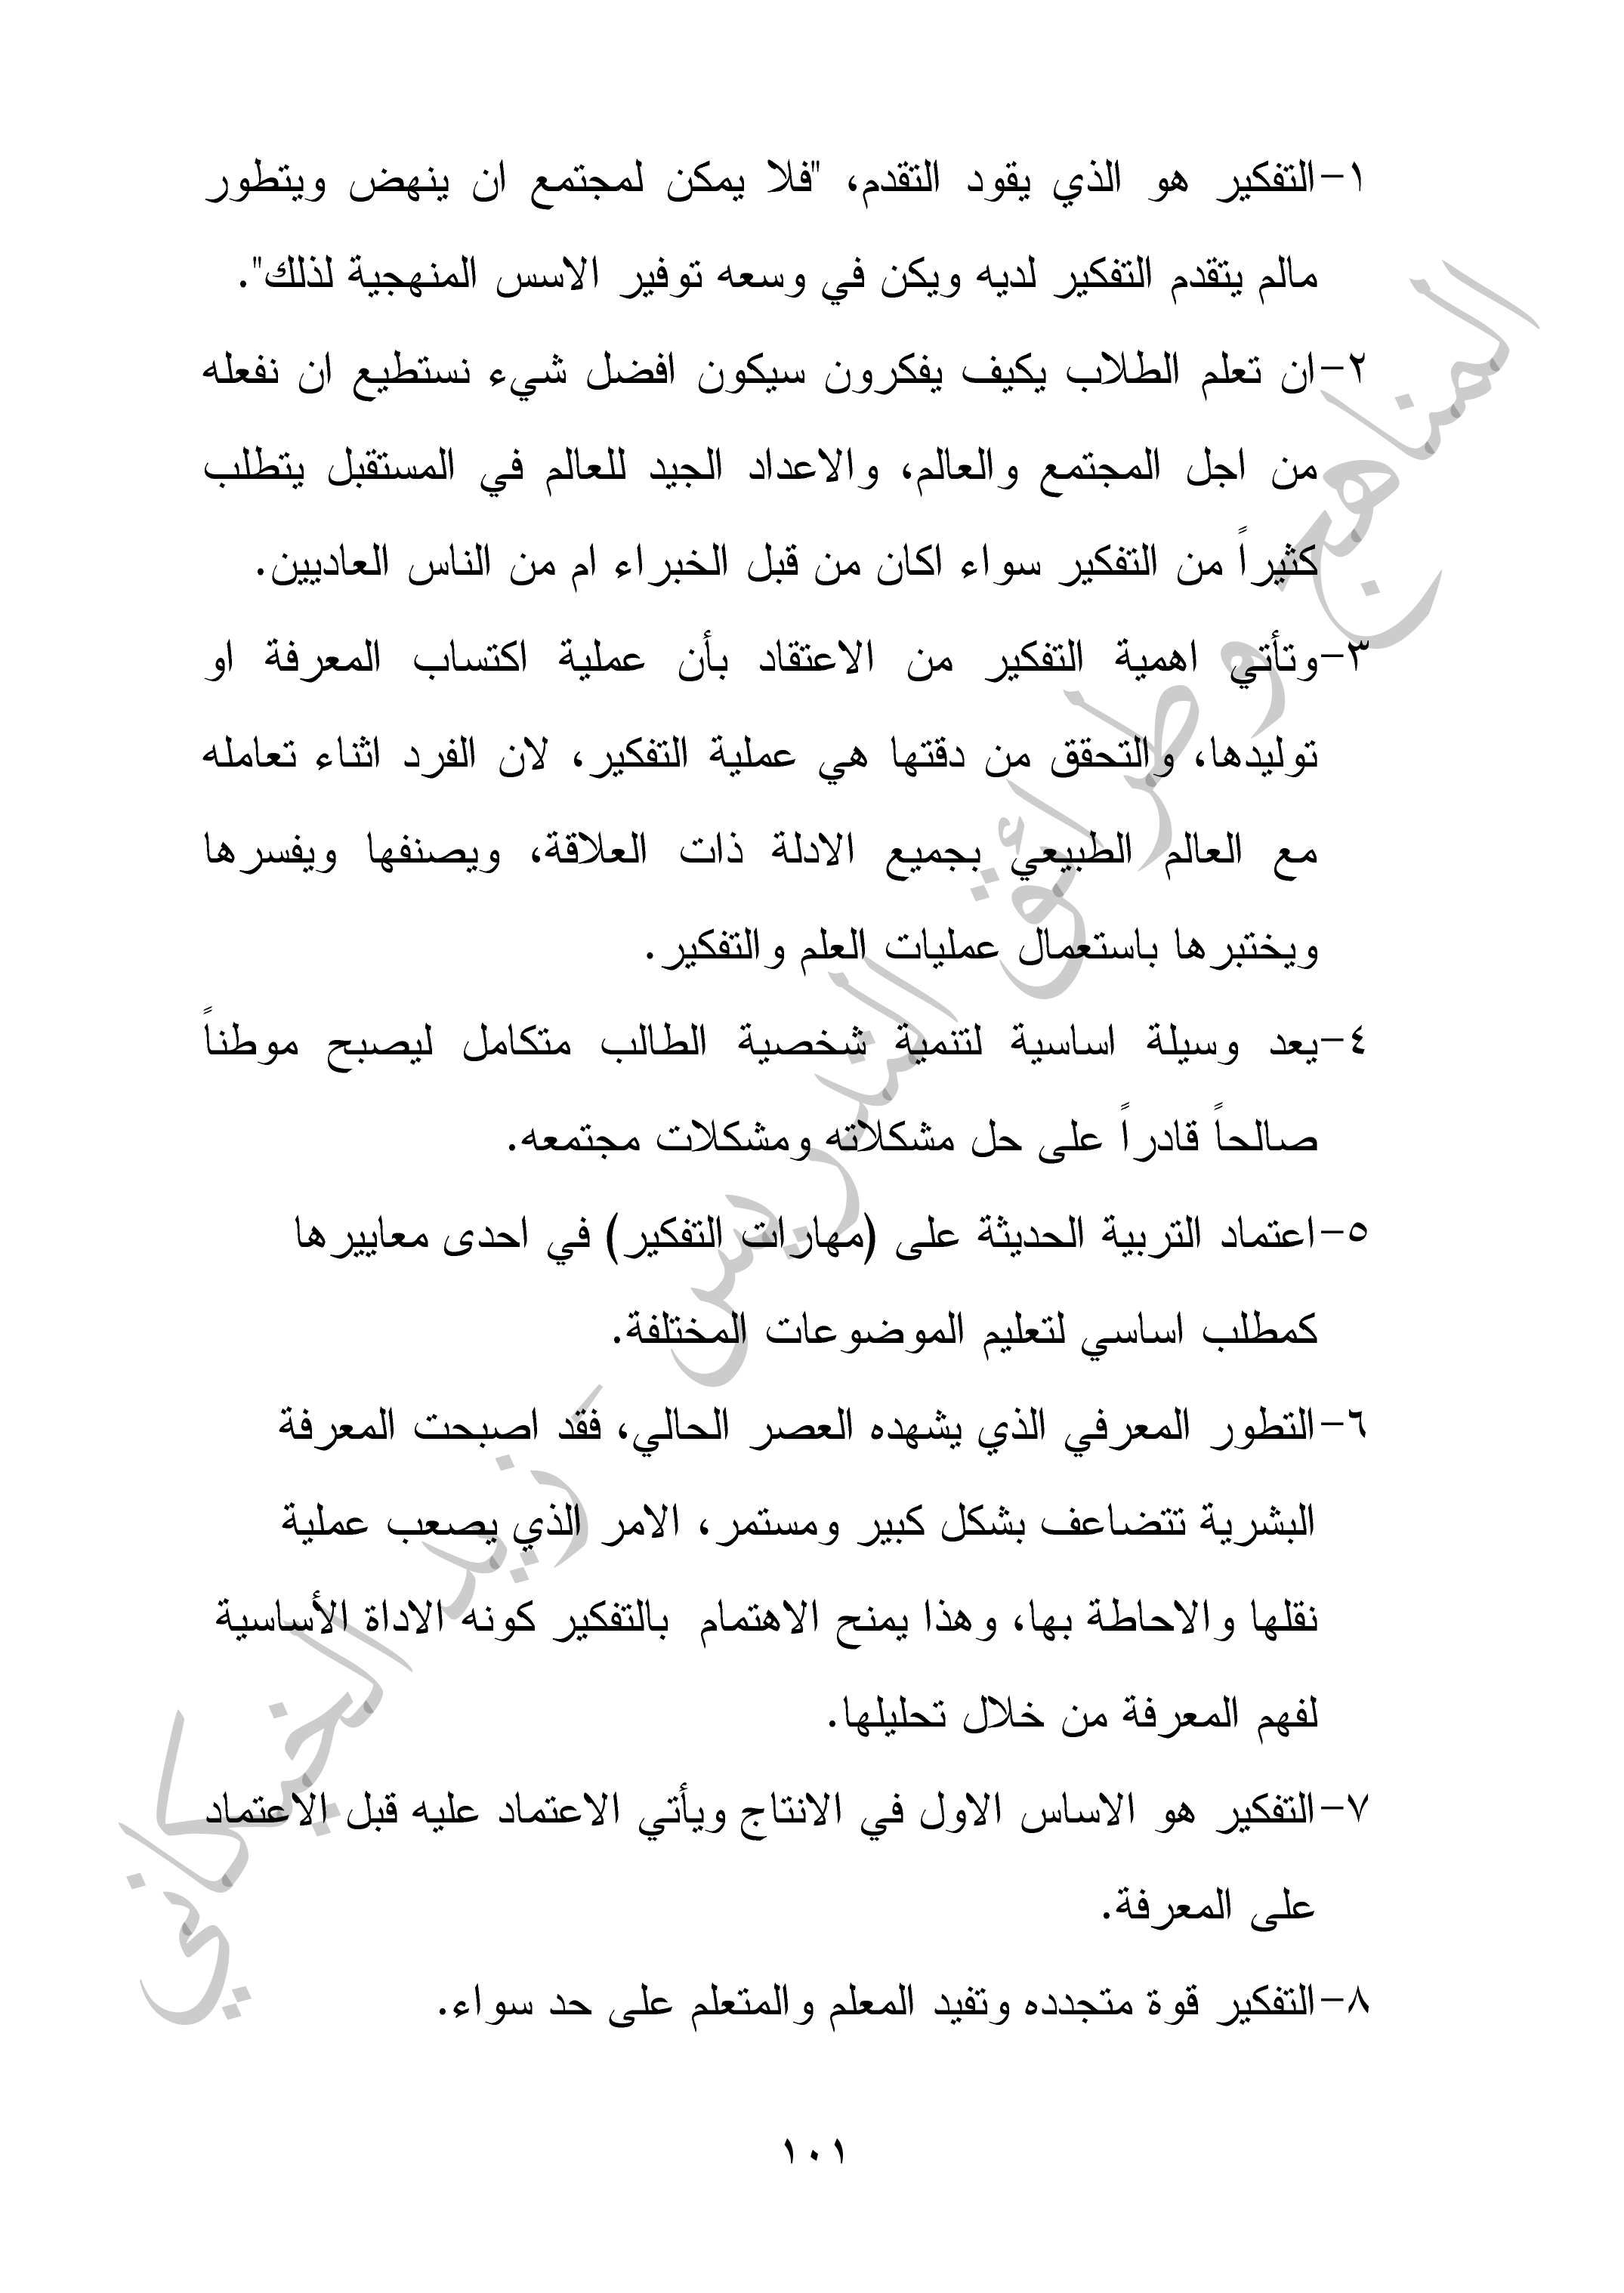 ١-التفكير هو الذي يقود التقدم، "فلا يمكن لمجتمع ان ينهض ويتطور
مالم يتقدم التفكير لديه ويكن في وسعه توفير الاسس المنهجية لذلك".
٢-ان تعلم الطلاب يكيف يفكرون سيكون افضل شيء نستطيع ان نفعله
من اجل المجتمع والعالم، والاعداد الجيد للعالم في المستقبل يتطلب
كثيراً من التفكير سواء اكان من قبل الخبراء ام من الناس العاديين.
٣-وتأتي اهمية التفكير من الاعتقاد بأن عملية اكتساب المعرفة او
توليدها، والتحقق من دقتها هي عملية التفكير، لان الفرد اثناء تعامله
مع العالم الطبيعي بجميع الادلة ذات العلاقة، ويصنفها ويفسرها
ويختبرها باستعمال عمليات العلم والتفكير.
٤-يعد وسيلة اساسية لتنمية شخصية الطالب متكامل ليصبح موطناً
صالحاً قادراً على حل مشكلاته ومشكلات مجتمعه.
٥-اعتماد التربية الحديثة على (مهارات التفكير) في احدى معاييرها
كمطلب اساسي لتعليم الموضوعات المختلفة.
٦-التطور المعرفي الذي يشهده العصر الحالي، فقد اصبحت المعرفة
البشرية تتضاعف بشكل كبير ومستمر، الامر الذي يصعب عملية
نقلها والاحاطة بها، وهذا يمنح الاهتمام بالتفكير كونه الاداة الأساسية
لفهم المعرفة من خلال تحليلها.
٧-التفكير هو الاساس الاول في الانتاج ويأتي الاعتماد عليه قبل الاعتماد
على المعرفة.
٨-التفكير قوة متجدده وتفيد المعلم والمتعلم على حد سواء.
١٠١
المناهج وطرائق التدريس - زيد الخيكاني